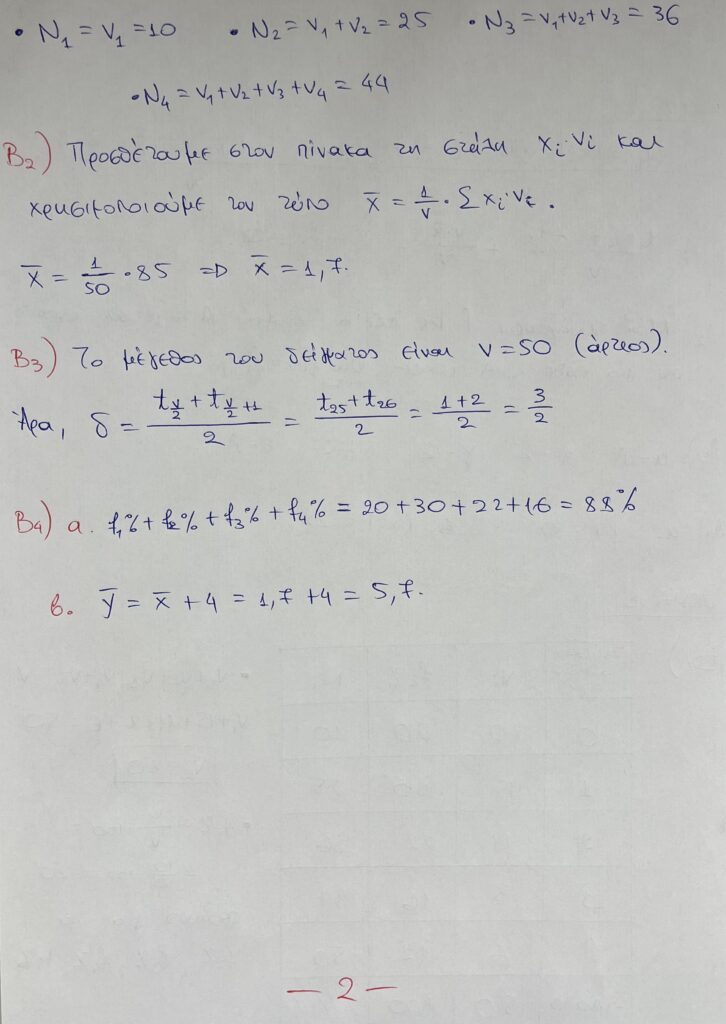 • N₁ = ν₁ = 10 • N₂ = ν₁ + ν₂ = 25 • N₃ = ν₁+ν₂+ν₃ = 36
• N₄ = ν₁+ν₂+ν₃+ν₄ = 44
B₂) Προσθέτουμε στον πίνακα τη στήλη xᵢ·νᵢ και
χρησιμοποιούμε τον τύπο x̄ = 1/ν · Σ xᵢ·νᵢ.
x̄ = 1/50 · 85 ⇒ x̄ = 1,7.
B₃) Το μέγεθος του δείγματος είναι ν = 50 (άρτιος).
Άρα, δ = (t_{ν/2} + t_{ν/2 +1})/2 = (t₂₅ + t₂₆)/2 = (1+2)/2 = 3/2
B₄) α. f₁% + f₂% + f₃% + f₄% = 20 + 30 + 22 + 16 = 88%
β. ȳ = x̄ + 4 = 1,7 + 4 = 5,7.
— 2 —